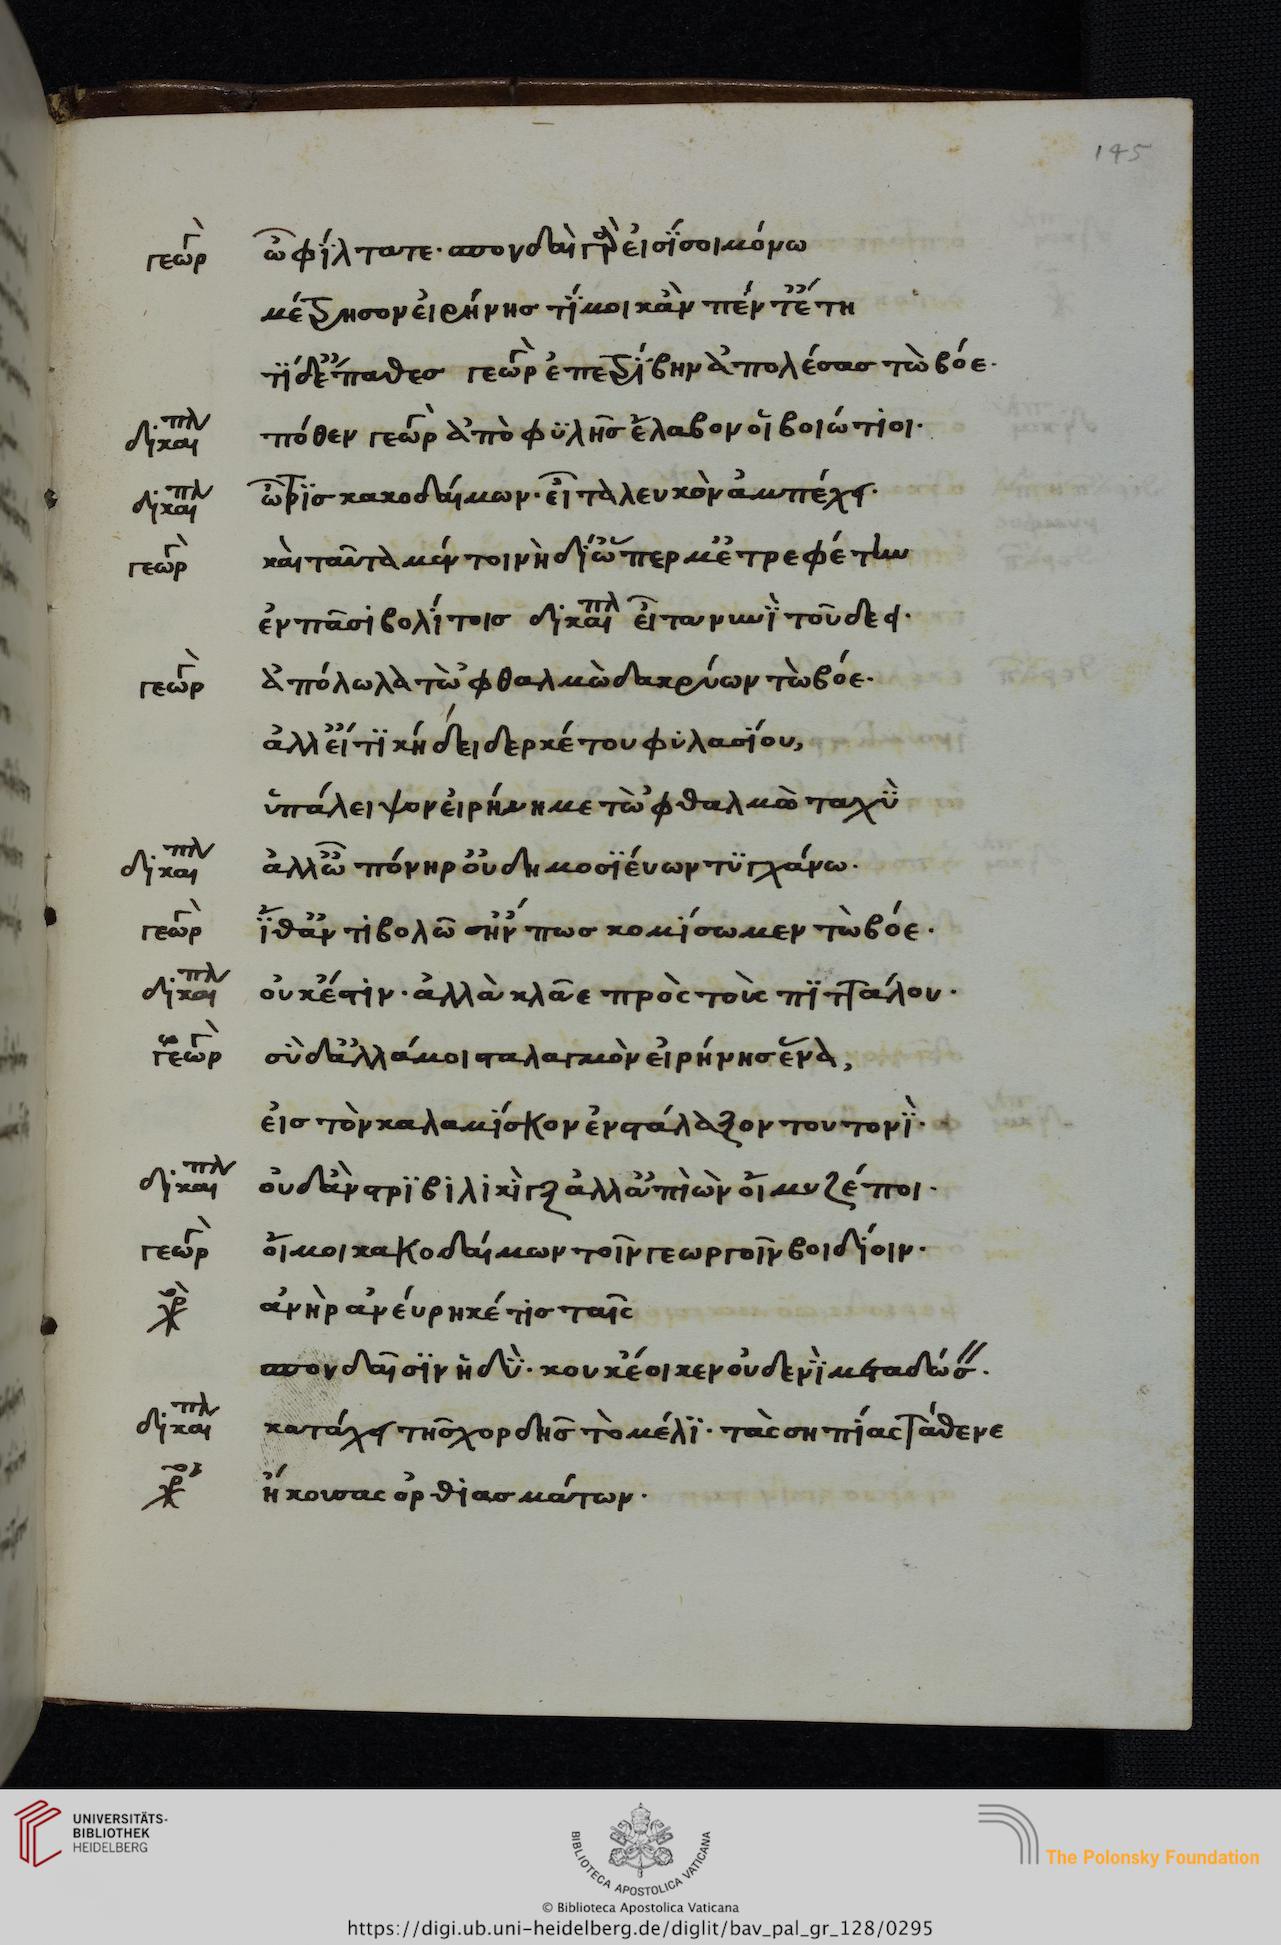 145
γεωρ ὦ φίλτατε· σπονδαὶ γάρ εἰσί σοι μόνω
μέτρησον εἰρήνησ τί μοι κἂν πέντ’ ἔτη
τί δ’ ἔπαθεσ γεωρ ἐπετρίβην ἀπολέσασ τὼ βόε·
δικαι πολ πόθεν γεωρ ἀπὸ φυλῆσ ἔλαβον οἱ βοιώτιοι·
δικαι πολ ὦ τρὶσ κακοδαίμων· εἶτα λευκὸν ἀμπέχει·
γεωρ καὶ ταῦτα μέντοι νὴ δί’ ὥπερ μ’ ἐτρεφέτην
ἐν πᾶσι βολίτοισ δικαι πολ εἶτα νυνὶ τοῦ δέει·
γεωρ ἀπόλωλα τὠφθαλμὼ δακρύων τὼ βόε·
ἀλλ’ εἴ τι κήδει δερκέτου φυλασίου,
ὑπάλειψον εἰρήνη με τὠφθαλμὼ ταχὺ
δικαι πολ ἀλλ’ ὦ πόνηρ’ οὐ δημοσιεύων τυγχάνω·
γεωρ ἴθ’ ἀντιβολῶ σ’ ἤν πωσ κομίσωμεν τὼ βόε·
δικαι πολ οὐκ ἔστιν· ἀλλὰ κλᾶε πρὸς τοὺς πιττάλου·
γεωρ σὺ δ’ ἀλλά μοι σταλαγμὸν εἰρήνησ ἕνα,
εἰσ τὸν καλαμίσκον ἐνστάλαξον τουτονί·
δικαι πολ οὐδ’ ἂν στριβιλικὶγξ ἀλλ’ ἀπιὼν οἴμωζέ ποι·
γεωρ οἴμοι κακοδαίμων τοῖν γεωργοῖν βοιδίοιν·
χορ ἀνὴρ ἀνεύρηκέ τι σταῖς
σπονδαῖσιν ἡδὺ· κουκ ἔοικεν οὐδενὶ μεταδώσ·
δικαι πολ κατάχει τῆσ χορδῆσ τὸ μέλι· τὰς σηπίας στάθευε
χορ ἤκουσας ὀρθιασμάτων·
UNIVERSITÄTS-
BIBLIOTHEK
HEIDELBERG
BIBLIOTECA APOSTOLICA VATICANA
The Polonsky Foundation
© Biblioteca Apostolica Vaticana
https://digi.ub.uni-heidelberg.de/diglit/bav_pal_gr_128/0295